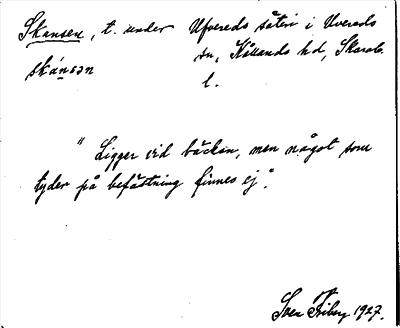 Skansen, t. under Ufvereds säteri i Uvereds
sn, Kållands hd, Skarab.
skánsən
l.
"Ligger vid bäcken, men något som
tyder på befästning finnes ej".
Sven Friberg 1927.